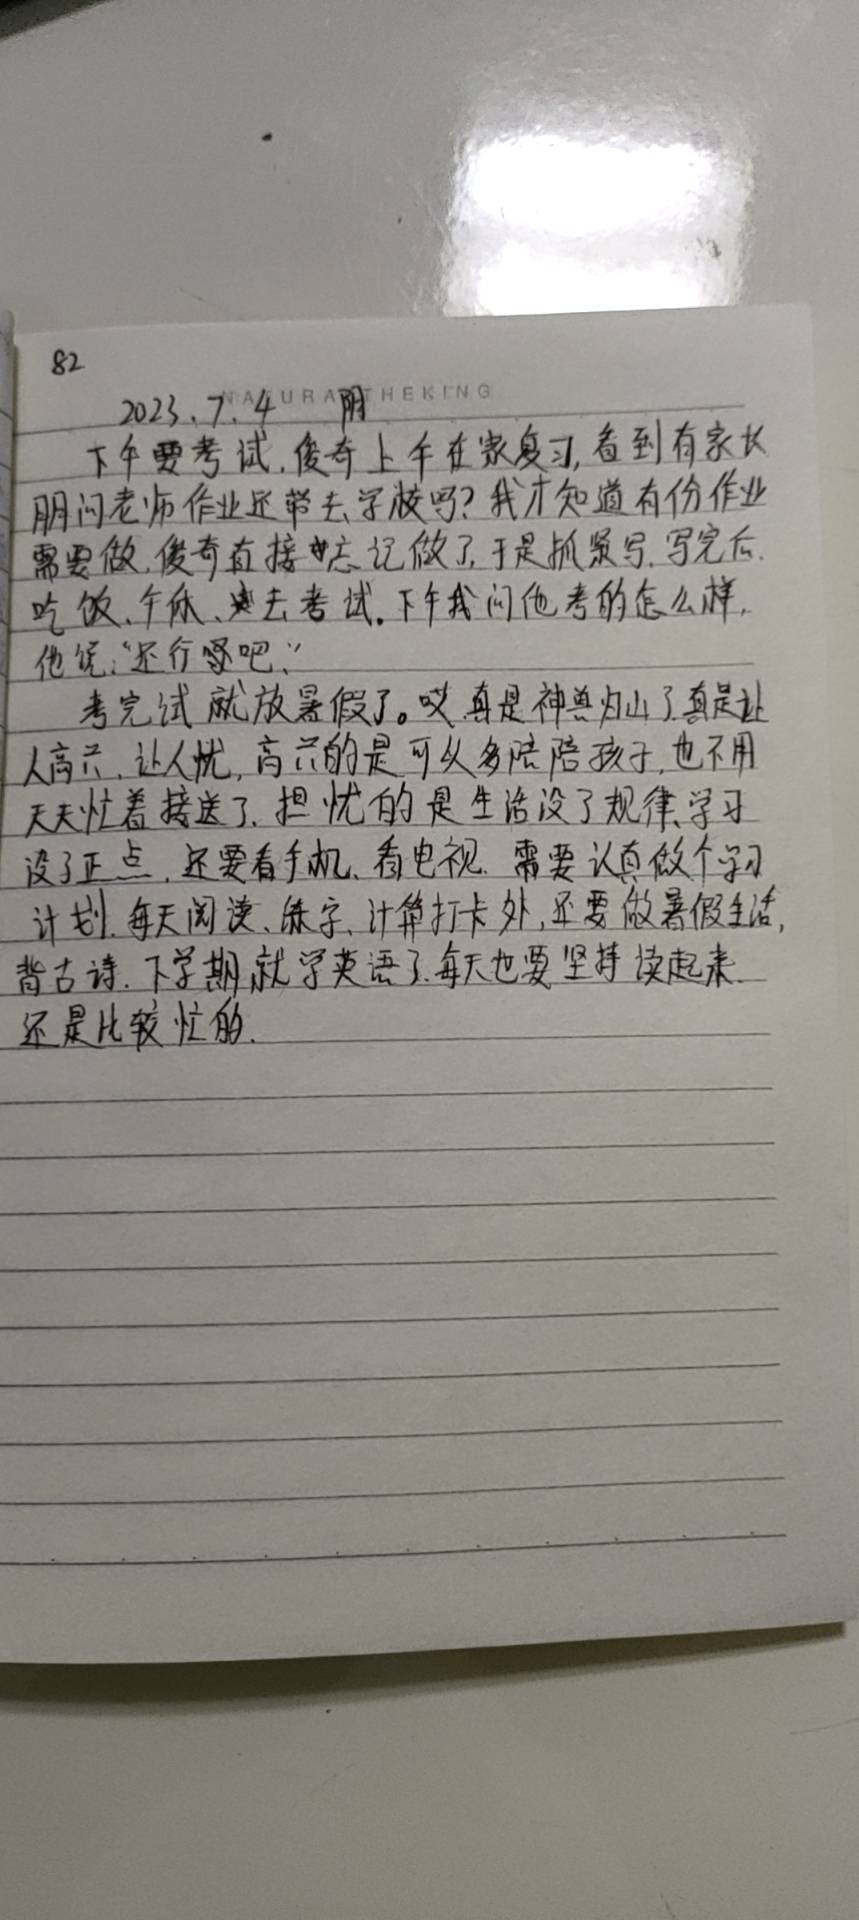 82
NATURA THEKING
2023.7.4 阴
下午要考试,俊奇上午在家复习,看到有家长
朋问老师作业还带去学校吗?我才知道有份作业
需要做,俊奇直接忘记做了,于是抓紧写,写完后,
吃饭、午休、去考试。下午我问他考的怎么样,
他说:“还行吧!”
考完试就放暑假了。哎,真是神兽归山了,真是让
人高兴,让人忧,高兴的是可以多陪陪孩子,也不用
天天忙着接送了,担忧的是生活没了规律,学习
没了正点,还要看手机、看电视,需要认真做个学习
计划,每天阅读、练字、计算打卡外,还要做暑假生活,
背古诗,下学期就学英语了,每天也要坚持读起来,
还是比较忙的.